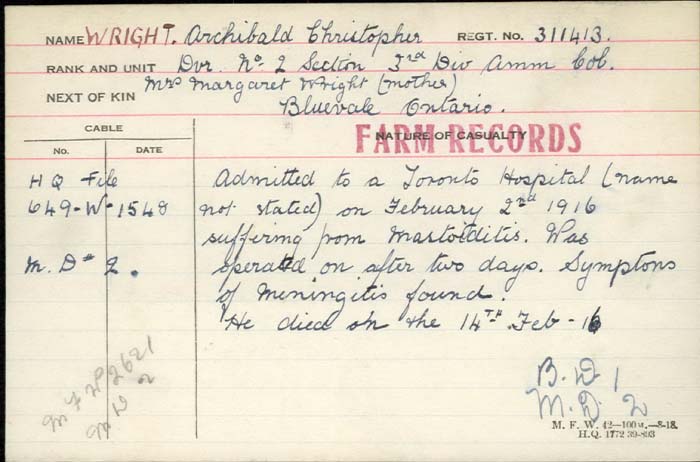 NAME WRIGHT. Archibald Christopher REGT. No. 311413.
RANK AND UNIT Dvr. No. 2 Section 3rd Div Amm Col.
NEXT OF KIN Mrs Margaret Wright (mother)
Bluevale Ontario.
CABLE
No. DATE
NATURE OF CASUALTY
FARM RECORDS
H Q File
649-W-1548
M. D # 2.
Admitted to a Toronto Hospital (name
not stated) on February 2nd 1916
suffering from Mastoiditis. Was
operated on after two days. Symptons
of Meningitis found.
He died on the 14TH Feb-16
M F W 2621
M D 2
B. D 1
M. D. 2
M. F. W. 42—100M.—8-18.
H.Q. 1772 39-893